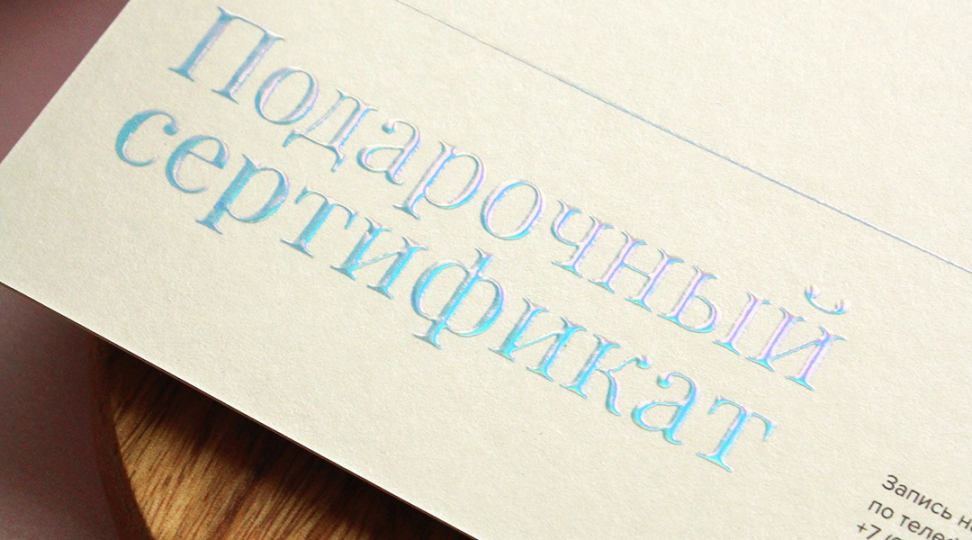 Подарочный
сертификат
Запись
по
+7